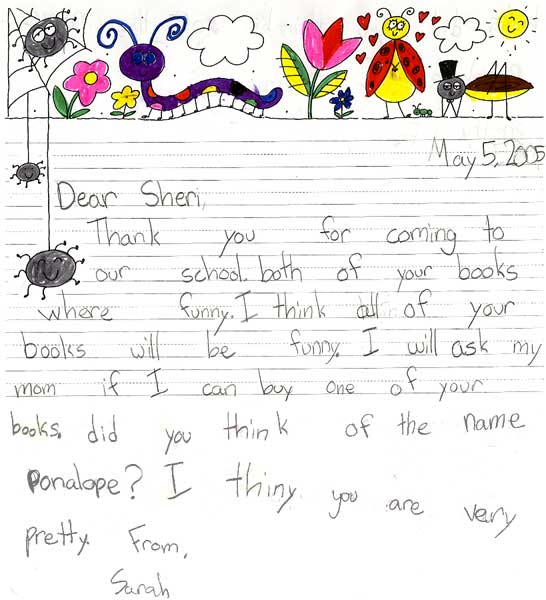 May 5, 2005
Dear Sheri,
Thank you for coming to
our school. both of your books
where funny. I think all of your
books will be funny. I will ask my
mom if I can buy one of your
books. did you think of the name
Ponalope? I thiny you are very
pretty. From,
Sarah